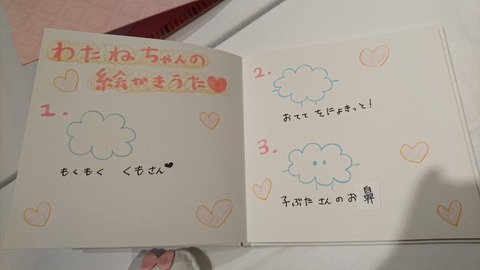 わたねちゃんの
絵かきうた♥
1.
もくもく くもさん♥
2.
おててをにょきっと!
3.
子ぶたさんのお鼻